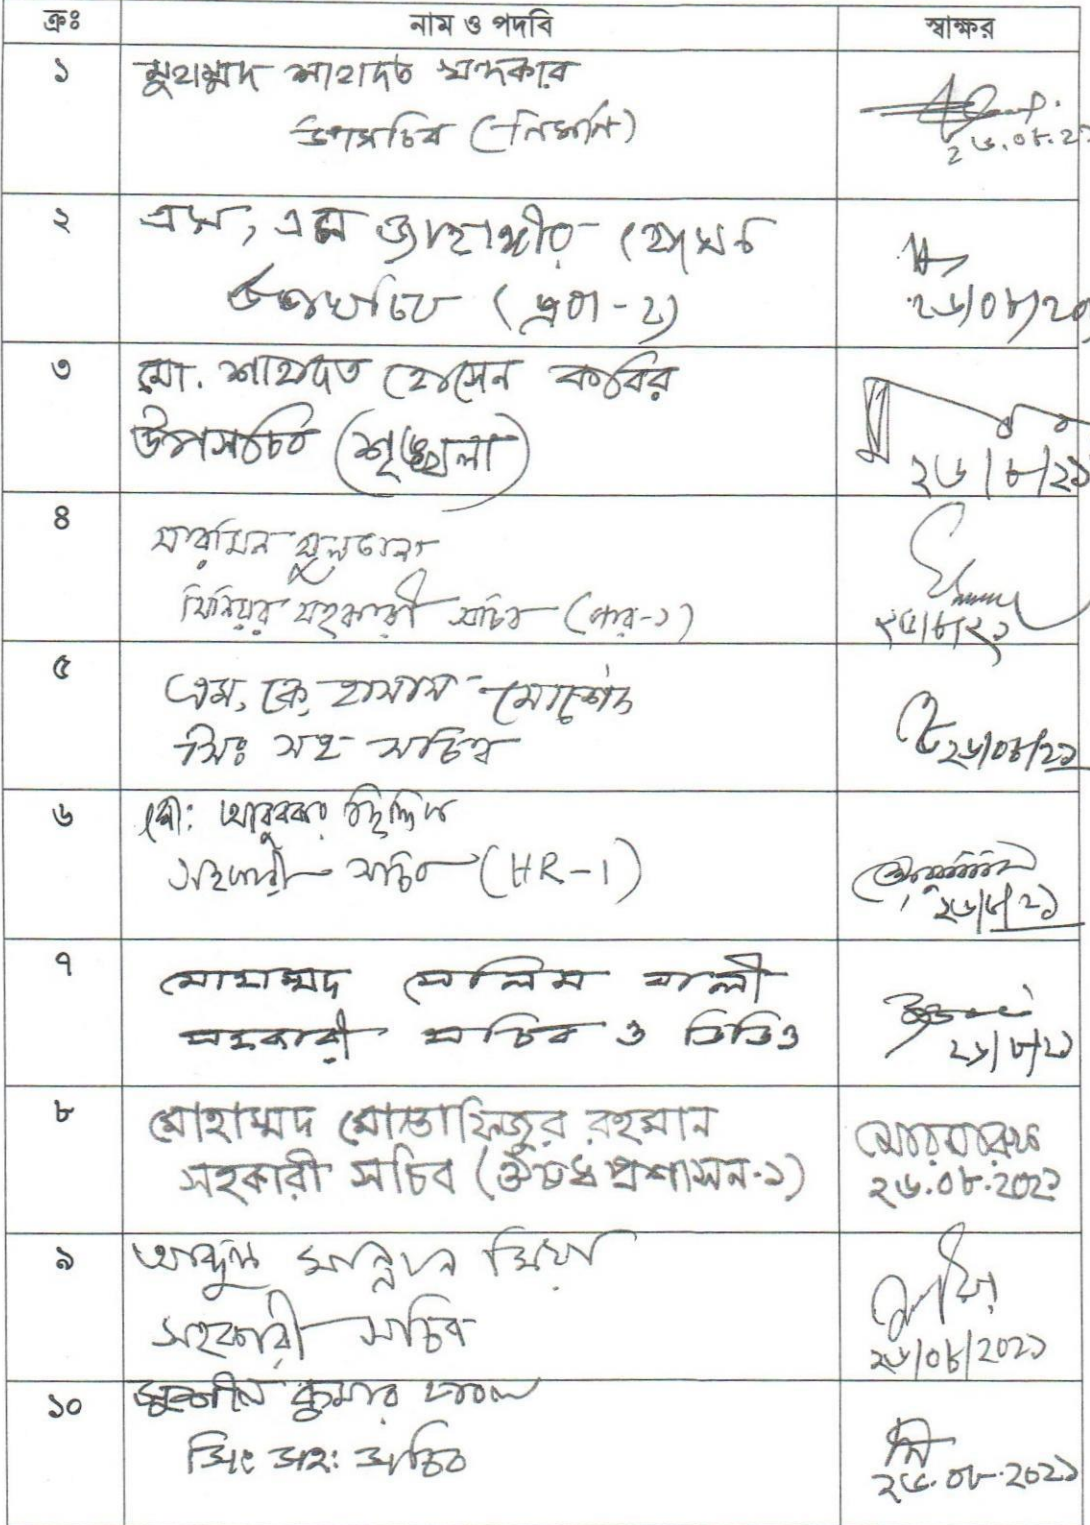 ক্রঃ নাম ও পদবি স্বাক্ষর
১ মুহাম্মদ শাহাদত খন্দকার
উপসচিব (নির্মাণ)
২৬.০৮.২১
২ এস, এম জাহাঙ্গীর হোসেন
উপসচিব (প্রশা-২)
২৬/০৮/২০
৩ মো. শাহাদত হোসেন কবির
উপসচিব (শৃঙ্খলা)
২৬/৮/২১
৪ শারমিন সুলতানা
সিনিয়র সহকারী সচিব (পার-১)
২৫/৮/২১
৫ এম, কে, হাসান মোর্শেদ
সিঃ সহ সচিব
২৬/০৮/২১
৬ মো: আবুবকর ছিদ্দিক
সহকারী সচিব (HR-1)
২৬/৮/২১
৭ মোহাম্মদ সেলিম আলী
সহকারী সচিব ও ডিডিও
২৬/৮/২১
৮ মোহাম্মদ মোস্তাফিজুর রহমান
সহকারী সচিব (ঔষধ প্রশাসন-১)
২৬.০৮.২০২১
৯ আব্দুল মান্নান মিয়া
সহকারী সচিব
২৬/০৮/২০২১
১০ কুমার
সিঃ সহ: সচিব
২৬.০৮.২০২১